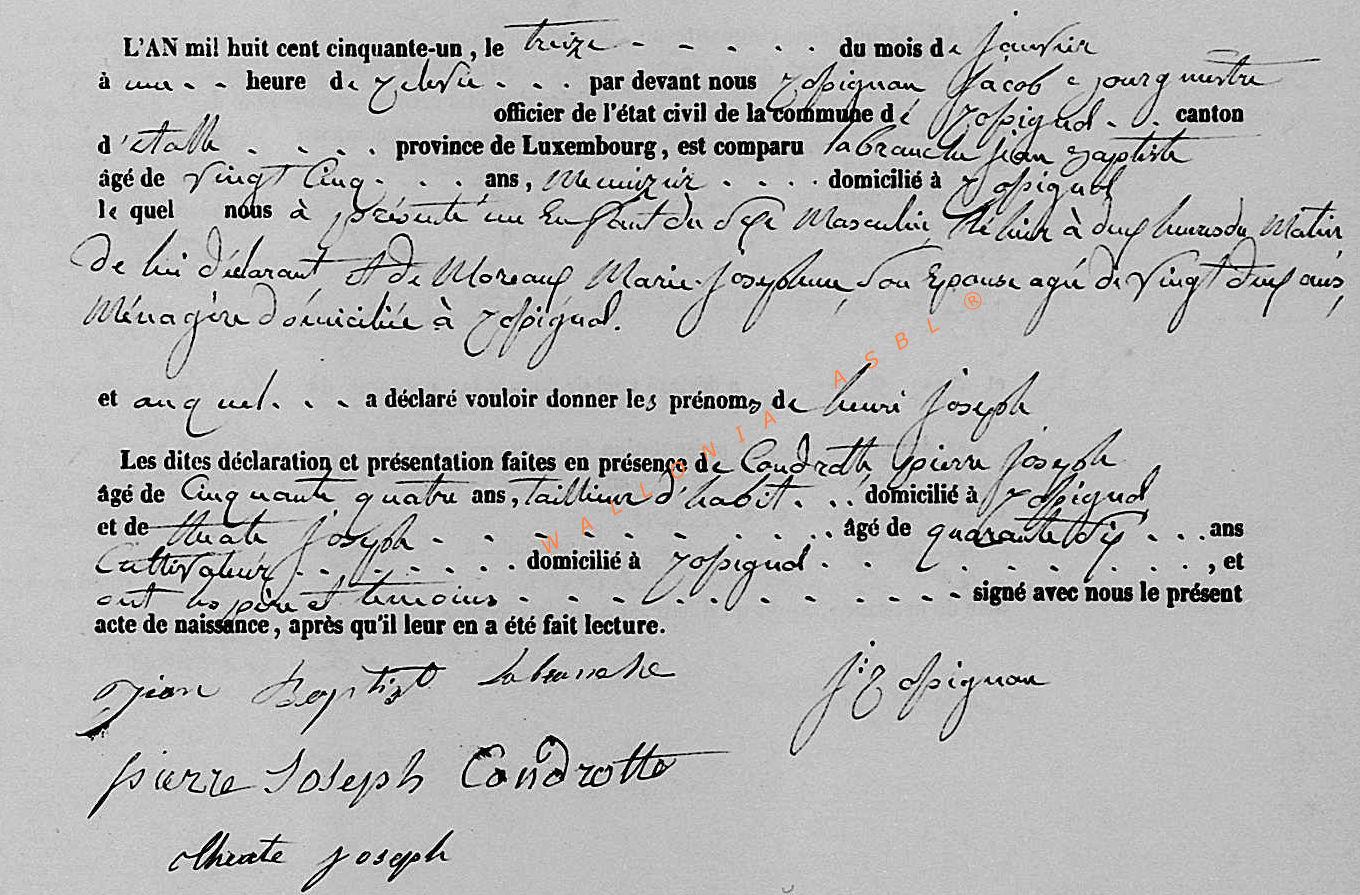 L'AN mil huit cent cinquante-un, le treize - - - - - du mois de janvier
à une - - heure de relevée - - - par devant nous Rossignon Jacob Bourgmestre
officier de l'état civil de la commune de Rossignol - - canton
d'étalle - - - - province de Luxembourg, est comparu labranche jean Baptiste
âgé de vingt Cinq - - - ans, Menuizier - - - - domicilié à Rossignol
le quel nous à présenté un Enfant du sexe Masculin, Né hier à deux heures du Matin
De lui déclarant, et de Moreaux Marie-josephine, son Epouse agé de vingt deux ans,
Ménagère domiciliée à Rossignol.
et auquel - - - a déclaré vouloir donner les prénoms de henri joseph
Les dites déclaration et présentation faites en présence de Condrotte pierre joseph
âgé de Cinquante quatre ans, tailleur d'habit - - - domicilié à Rossignol
et de joseph - - - - - - - - - - âgé de quarante dix - - - ans
Cultivateur - - - - - - - domicilié à Rossignol - - - - - - - -, et
ont les père et témoins - - - - - - - - - - - - signé avec nous le présent
acte de naissance, après qu'il leur en a été fait lecture.
Jean Baptist Labranche J: Rossignon
pierre Joseph Condrotte
joseph
WALLONIA ASBL ®